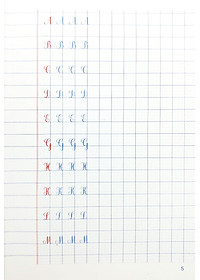 A A A A
B B B B
C C C C
D D D D
E E E E
G G G G
H H H H
K K K K
L L L L
M M M M
5